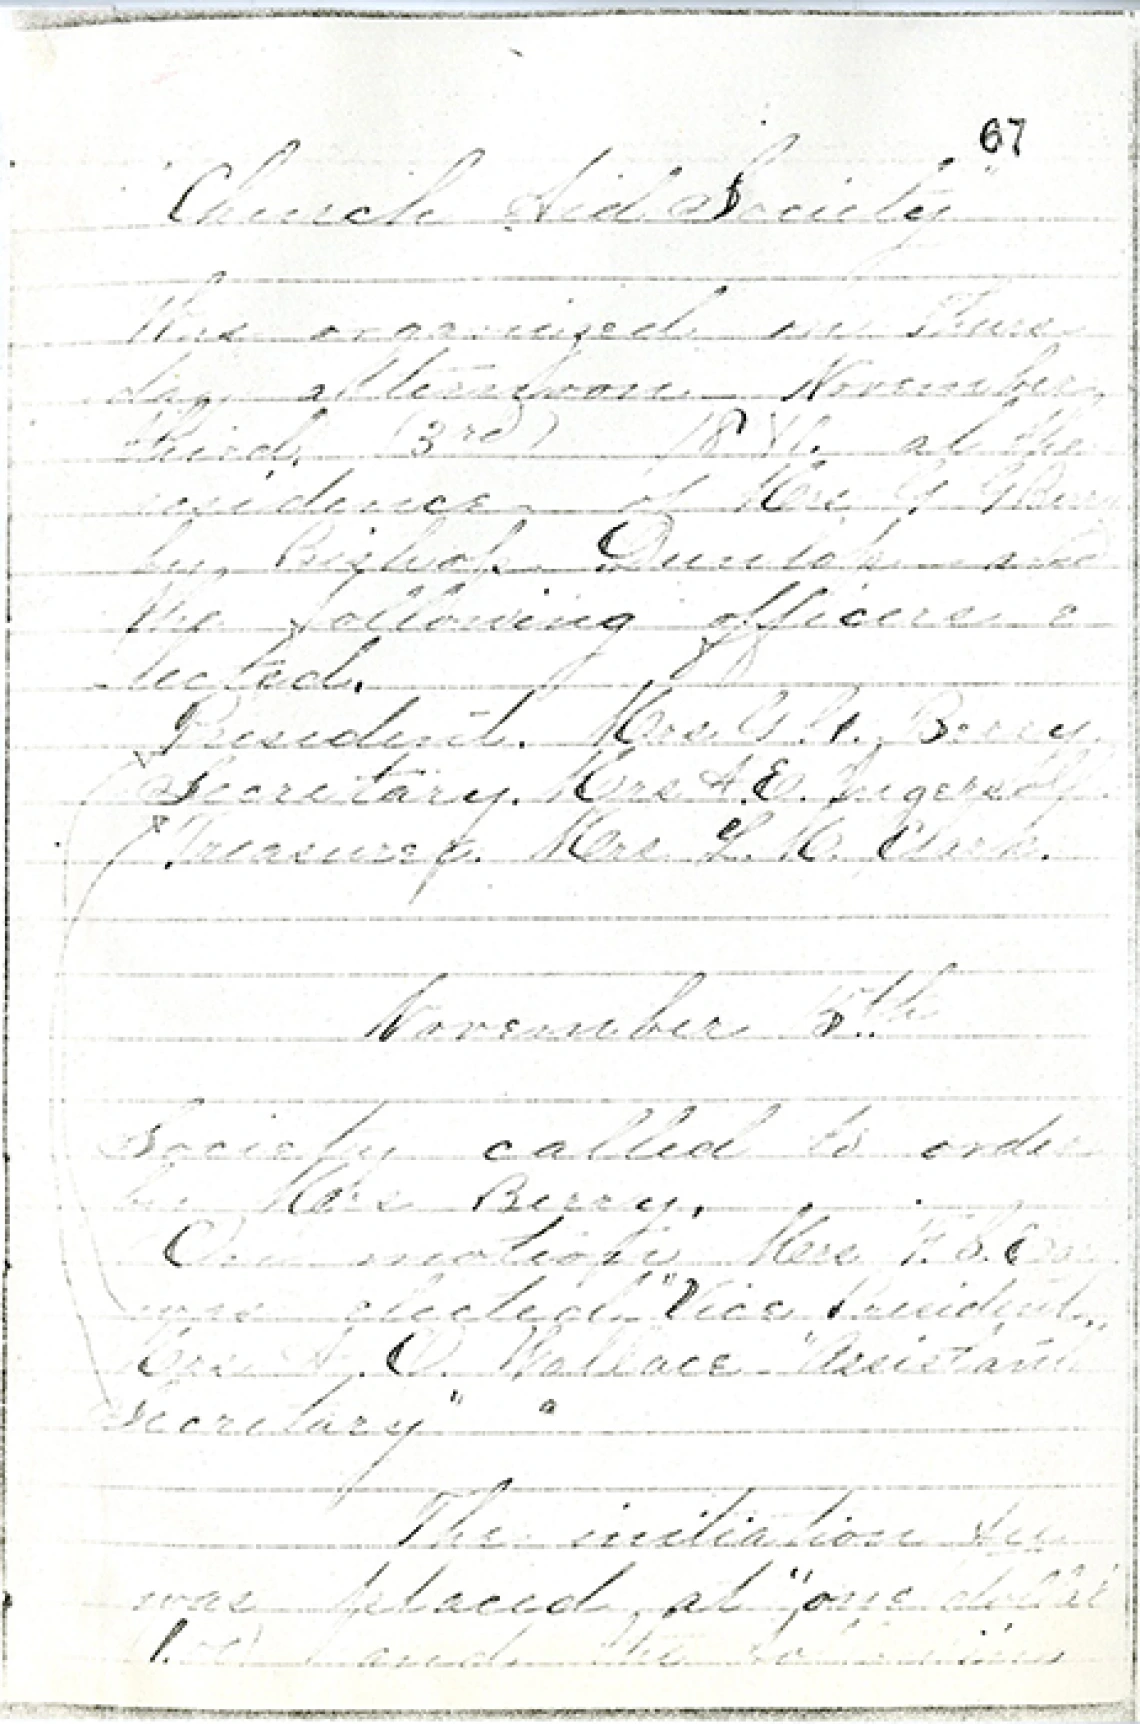 67
"Church Aid Society"
Was organized on Thurs
day afternoon November
third, (3rd) 18 at the
residence of Mrs G. G Berry
by Bishop Dunlop and
the following officers e
lected.
President. Mrs. G. Berry.
Secretary. Mrs A. E. Ingersoll.
Treasurer. Mrs. L. K. Clark.
November 5th
Society called to order
by Mrs Berry.
On motion Mrs F. S.
was elected "Vice President,,
Mrs A. O. Wallace "Assistant
Secretary"
The initiation fee
was placed at "one dollar
1.00) and the